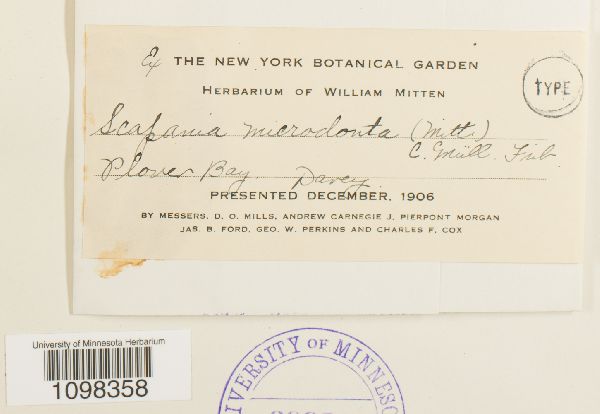 Ex THE NEW YORK BOTANICAL GARDEN
HERBARIUM OF WILLIAM MITTEN
TYPE
Scapania microdonta (Mitt.)
C. Müll. Frib.
Plover Bay. Davey.
PRESENTED DECEMBER, 1906
BY MESSERS. D. O. MILLS, ANDREW CARNEGIE J. PIERPONT MORGAN
JAS. B. FORD, GEO. W. PERKINS AND CHARLES F. COX
University of Minnesota Herbarium
1098358
UNIVERSITY OF MINNESO